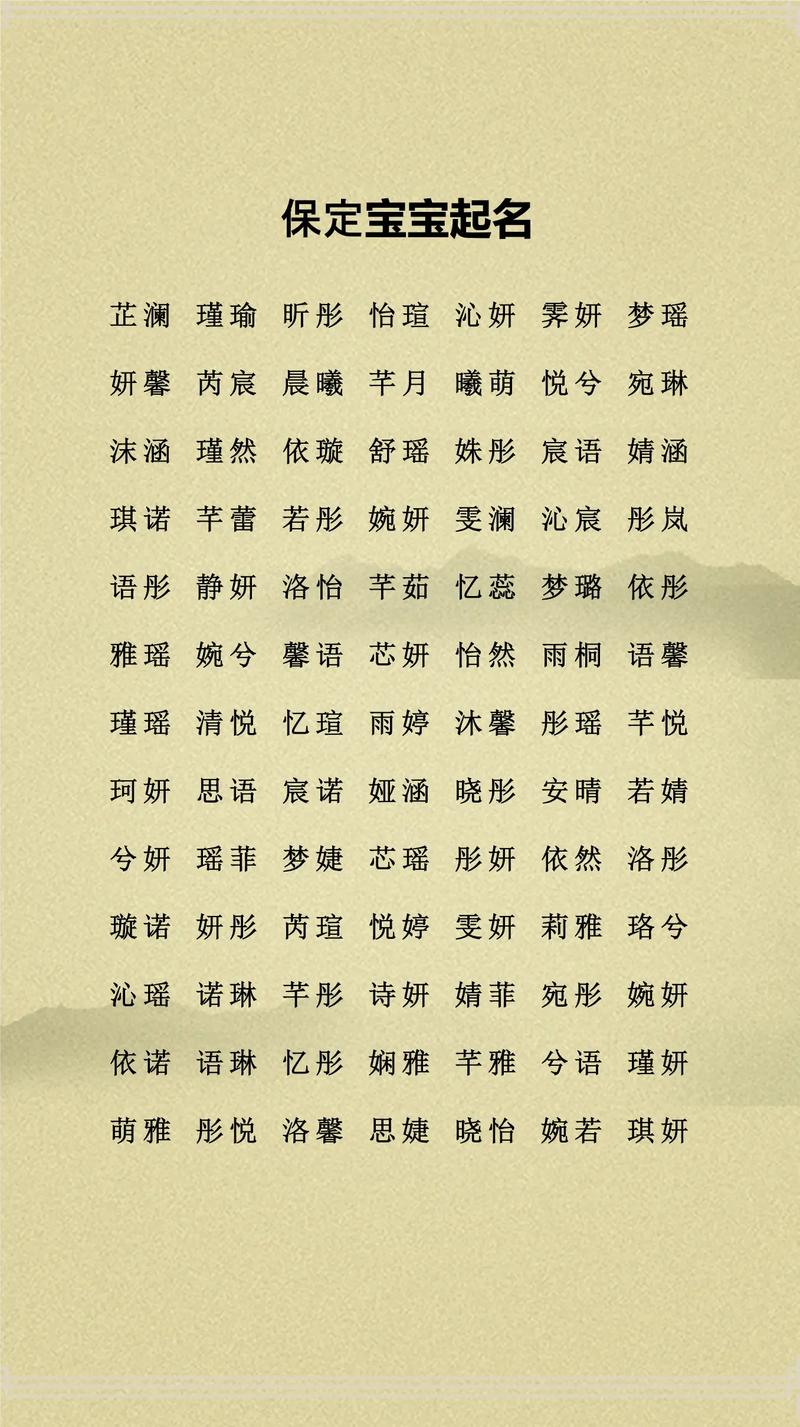 保定宝宝起名
芷澜 瑾瑜 昕彤 怡瑄 沁妍 霁妍 梦瑶
妍馨 芮宸 晨曦 芊月 曦萌 悦兮 宛琳
沫涵 瑾然 依璇 舒瑶 姝彤 宸语 婧涵
琪诺 芊蕾 若彤 婉妍 雯澜 沁宸 彤岚
语彤 静妍 洛怡 芊茹 忆蕊 梦璐 依彤
雅瑶 婉兮 馨语 芯妍 怡然 雨桐 语馨
瑾瑶 清悦 忆瑄 雨婷 沐馨 彤瑶 芊悦
珂妍 思语 宸诺 娅涵 晓彤 安晴 若婧
兮妍 瑶菲 梦婕 芯瑶 彤妍 依然 洛彤
璇诺 妍彤 芮瑄 悦婷 雯妍 莉雅 珞兮
沁瑶 诺琳 芊彤 诗妍 婧菲 宛彤 婉妍
依诺 语琳 忆彤 娴雅 芊雅 兮语 瑾妍
萌雅 彤悦 洛馨 思婕 晓怡 婉若 琪妍